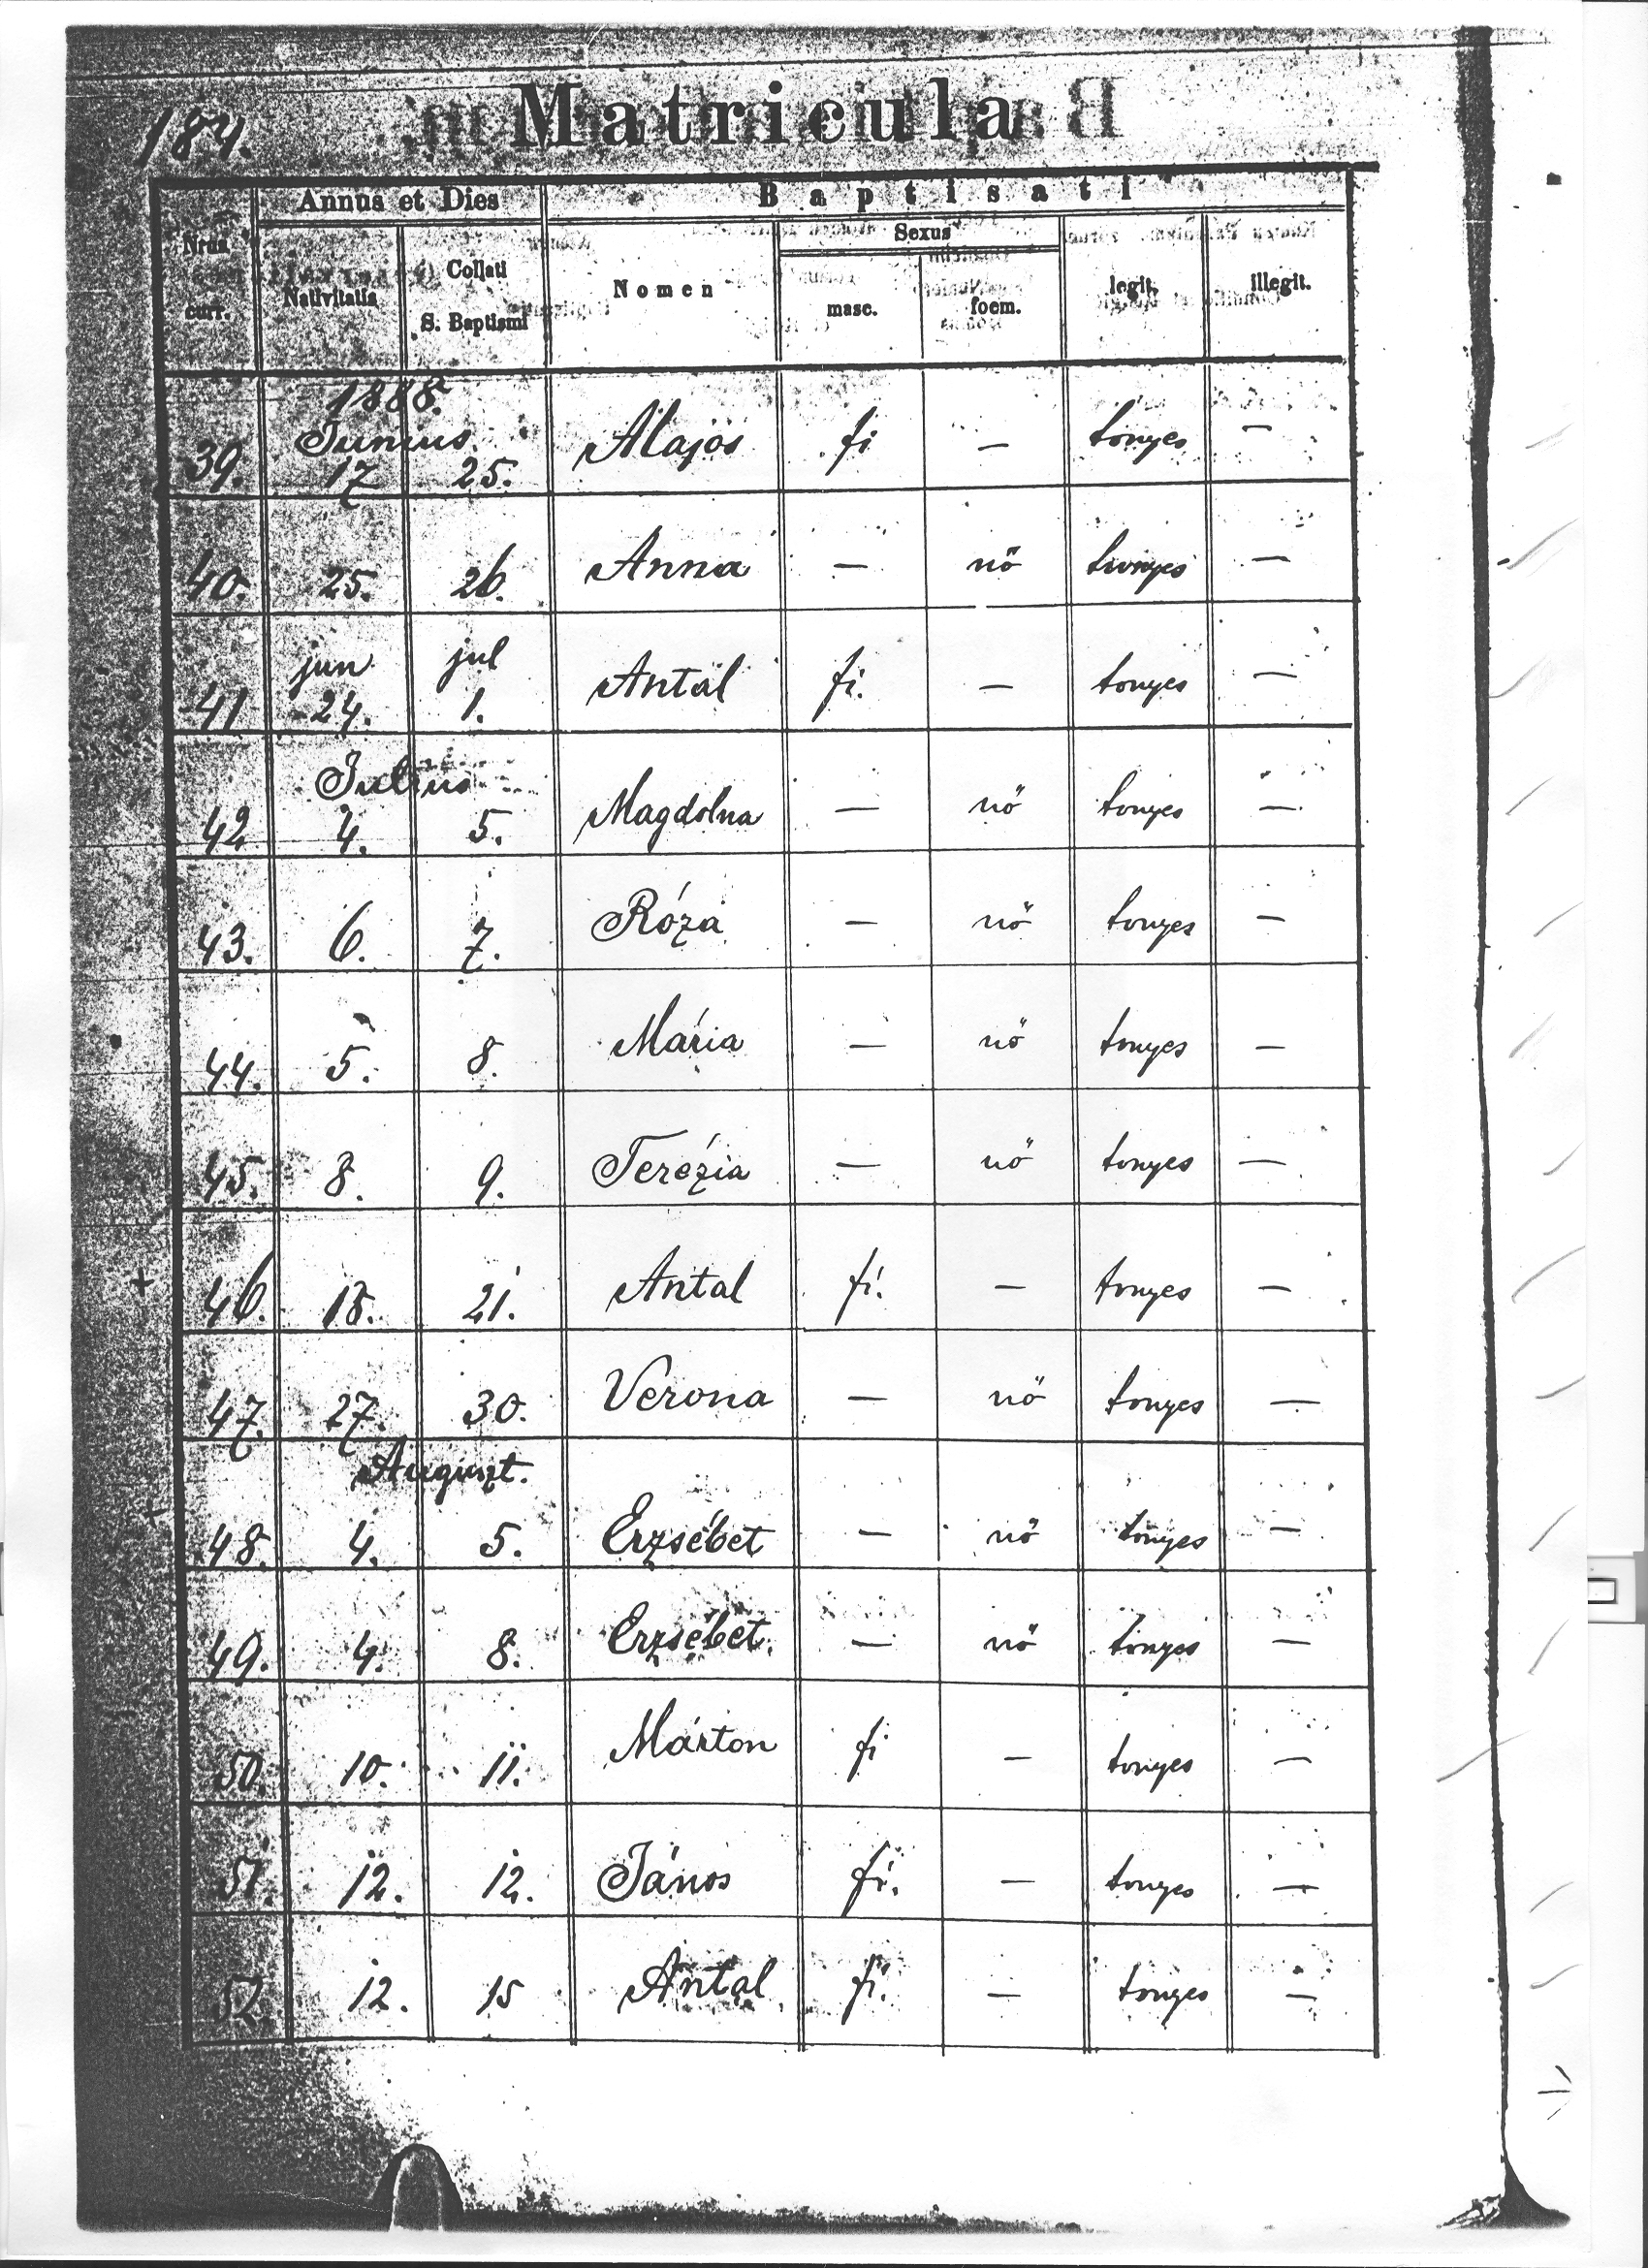 184.
Matricula
Annus et Dies
Baptisati
Nrus curr.
Nativitatis
Collati S. Baptismi
Nomen
Sexus
masc.
foem.
legit.
illegit.
1888.
Junius
39. 17 25. Alajos fi — tönyes —
40. 25. 26. Anna — nő tvonyes —
jun jul
41 24. 1. Antal fi. — tonyes —
Julius
42 4. 5. Magdolna — nő tonyes —
43. 6. 7. Róza — nő tonyes —
44. 5. 8. Mária — nő tonyes —
45. 8. 9. Terézia — nő tonyes —
46. 18. 21. Antal fi. — tonyes —
47. 27. 30. Verona — nő tonyes —
Auguszt.
48. 4. 5. Erzsébet — nő tonyes —
49. 4. 8. Erzsébet — nő tonyes —
50. 10. 11. Márton fi — tonyes —
51. 12. 12. János fi. — tonyes —
52. 12. 15 Antal fi. — tonyes —